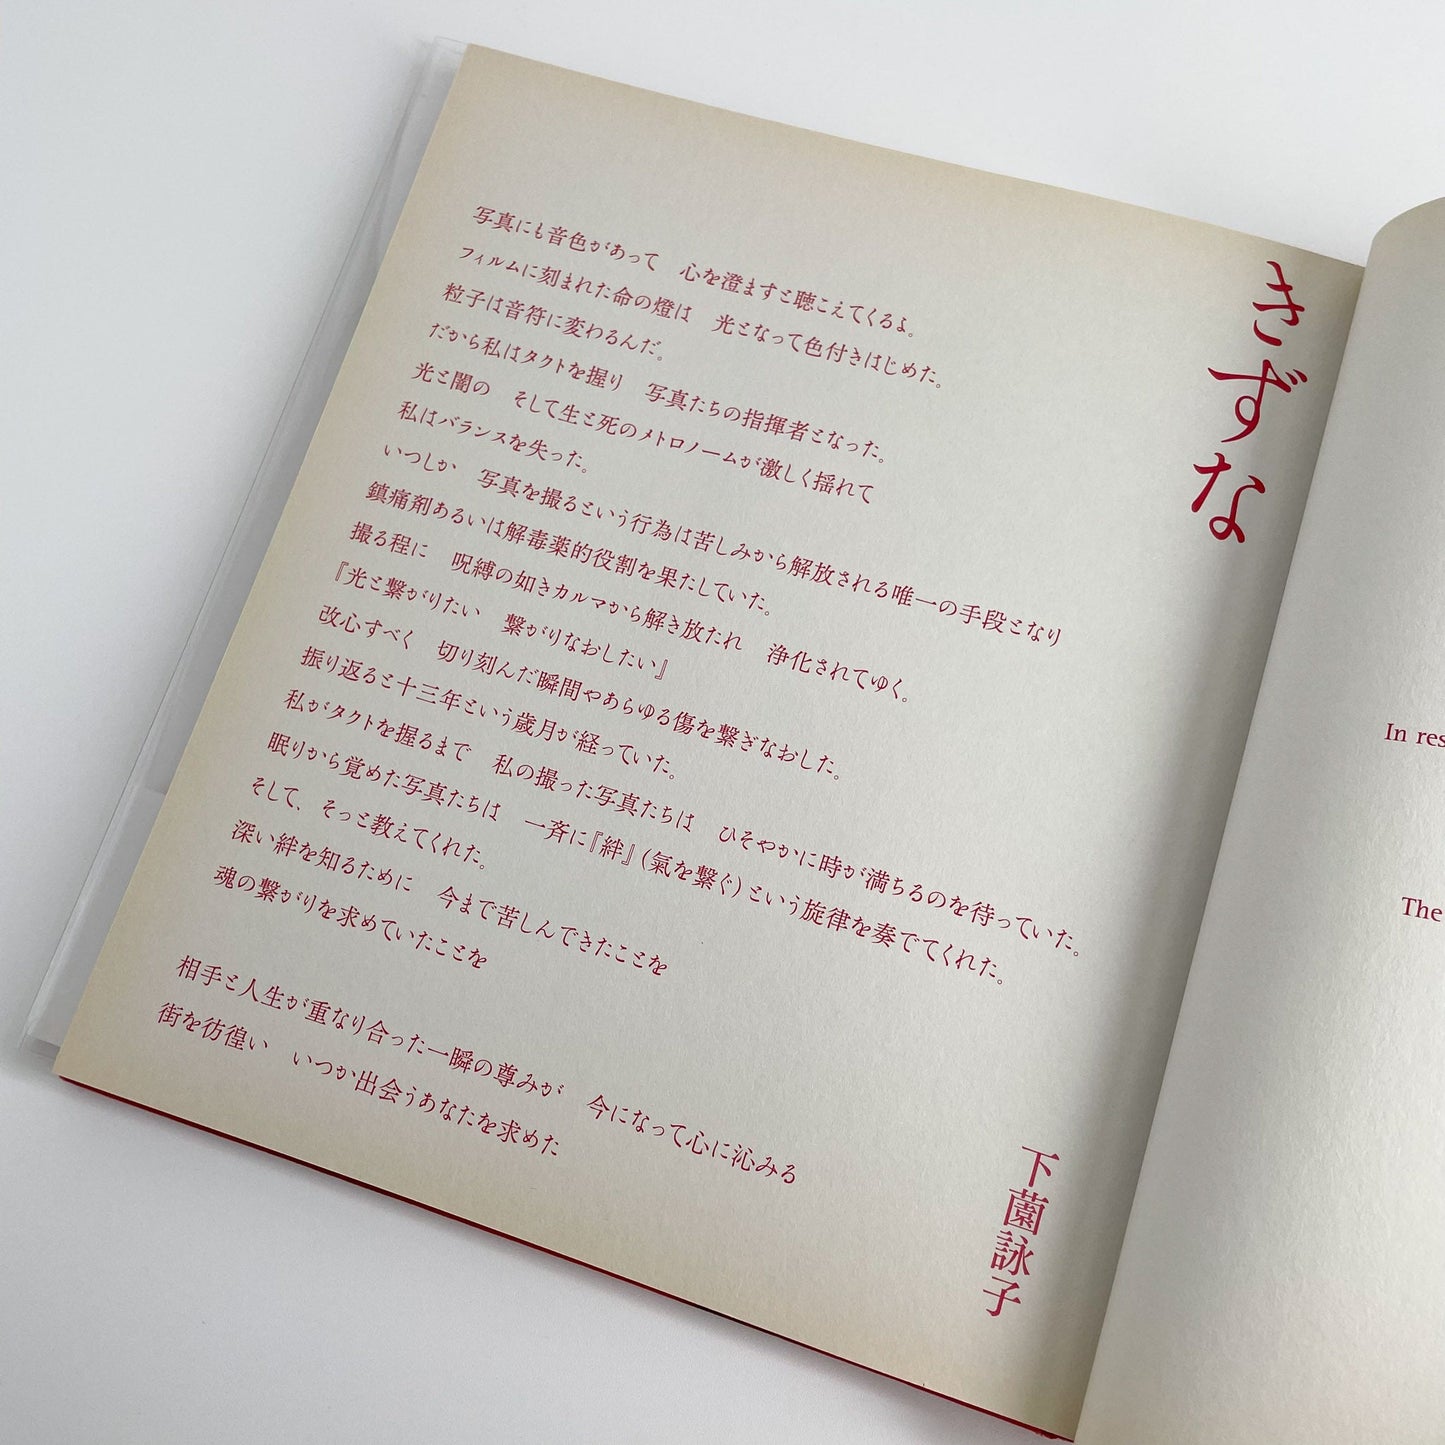 きずな
写真にも音色があって　心を澄ますと聴こえてくるよ。
フィルムに刻まれた命の燈は　光となって色付きはじめた。
粒子は音符に変わるんだ。
だから私はタクトを握り　写真たちの指揮者となった。
光と闇の　そして生と死のメトロノームが激しく揺れて
私はバランスを失った。
いつしか　写真を撮るという行為は苦しみから解放される唯一の手段となり
鎮痛剤あるいは解毒薬的役割を果たしていた。
撮る程に　呪縛の如きカルマから解き放たれ　浄化されてゆく。
『光と繋がりたい　繋がりなおしたい』
改心すべく　切り刻んだ瞬間やあらゆる傷を繋ぎなおした。
振り返ると十三年という歳月が経っていた。
私がタクトを握るまで　私の撮った写真たちは　ひそやかに時が満ちるのを待っていた。
眠りから覚めた写真たちは　一斉に『絆』（氣を繋ぐ）という旋律を奏でてくれた。
そして、そっと教えてくれた。
深い絆を知るために　今まで苦しんできたことを
魂の繋がりを求めていたことを
相手と人生が重なり合った一瞬の尊みが　今になって心に沁みる
街を彷徨い　いつか出会うあなたを求めた
下薗詠子
In res
The